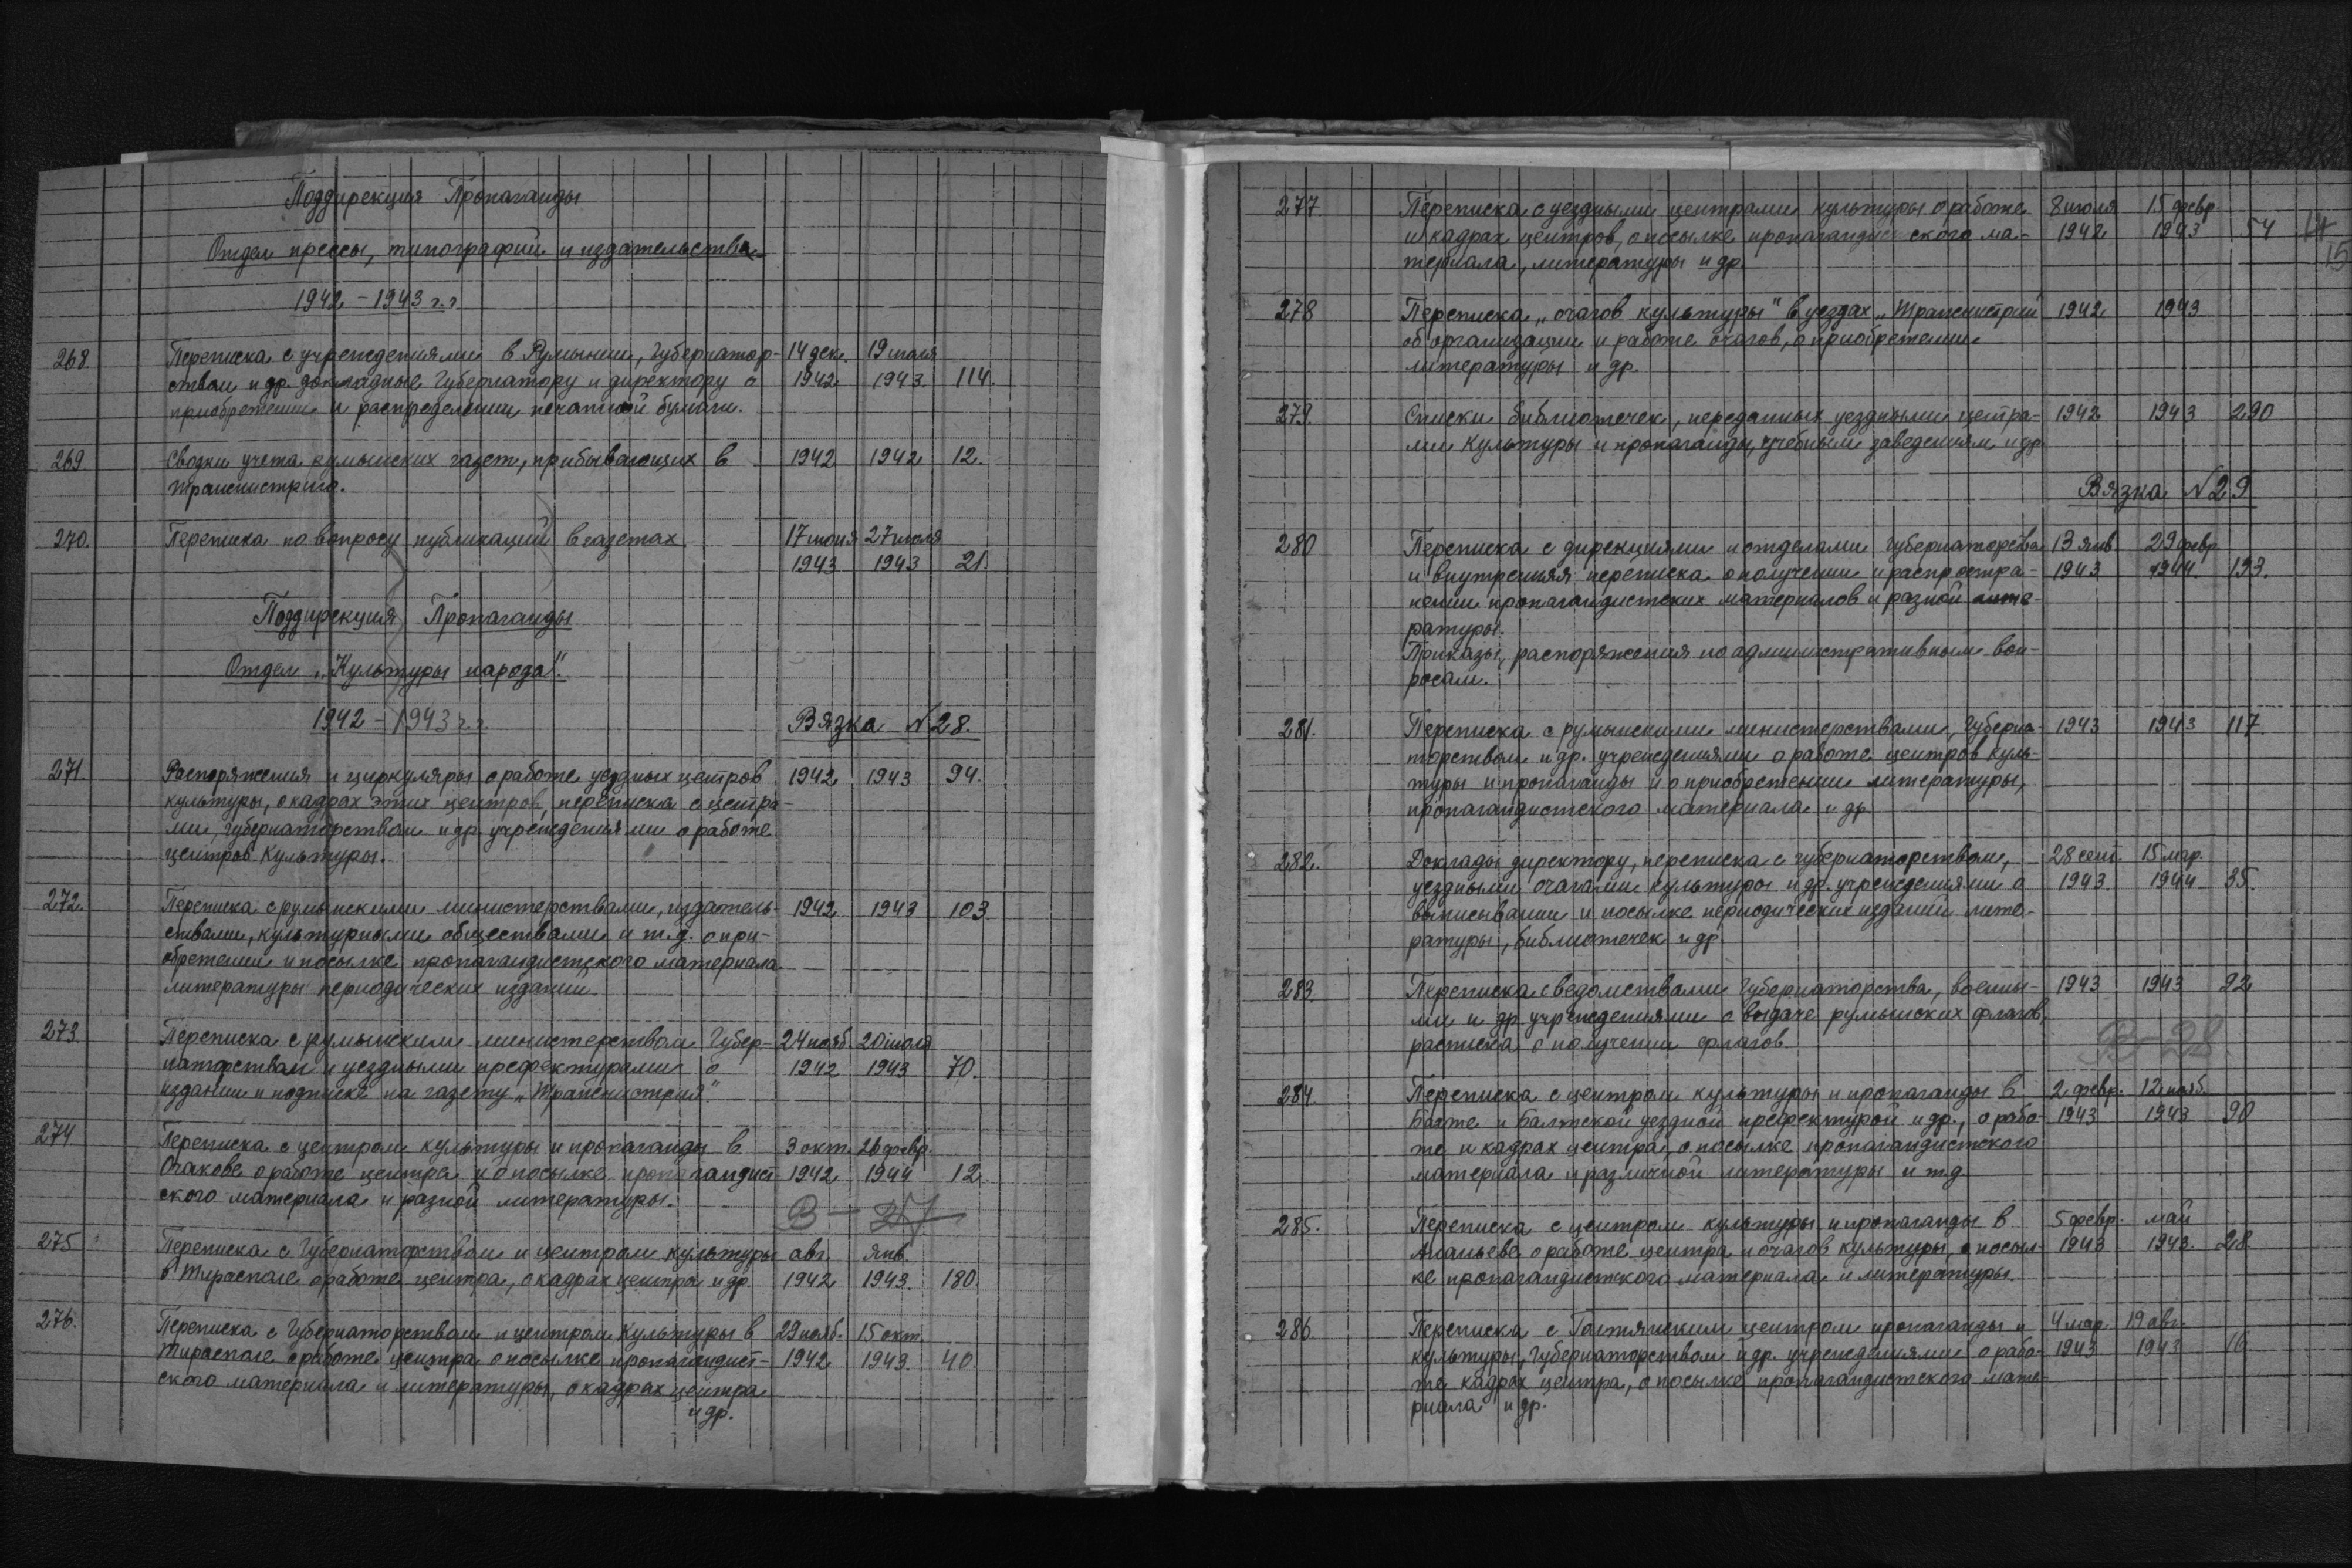 Поддирекция Пропаганды
Отдел прессы, типографий и издательства
1942 – 1943 г.г
268. Переписка с учреждениями в Румынии, Губернатор- 14 дек. 19 июля
ством и др. докладные Губернатору и директору о 1942 1943. 114.
приобретении и распределении печатной бумаги.
269. Сводки учета румынских газет, прибывающих в 1942 1942 12.
Транснистрию.
270. Переписка по вопросу публикаций в газетах 17 июня 27 июля
1943 1943 21.
Поддирекция Пропаганды
Отдел „Культуры народа".
1942 – 1943 г.г. Вязка N 28.
271. Распоряжения и циркуляры о работе уездных центров 1942 1943 94.
культуры, о кадрах этих центров, переписка с центра-
ми, губернаторством и др. учреждениями о работе
центров культуры.
272. Переписка с румынскими министерствами, издатель- 1942 1943 103
ствами, культурными обществами и т.д. о при-
обретении и посылке пропагандистского материала
литературы периодических изданий.
273. Переписка с румынским министерством Губер- 24 нояб. 20 июля
наторством и уездными префектурами о 1942 1943 70.
издании и подписке на газету „Транснистрия"
274 Переписка с центром культуры и пропаганды в 3 окт. 26 февр.
Очакове о работе центра и о посылке пропагандист- 1942 1944 12.
ского материала и разной литературы.
В – 27
275 Переписка с Губернаторством и центром культуры авг. янв.
в Тирасполе о работе центра, о кадрах центра и др. 1942 1943. 180.
276. Переписка с Губернаторством и центром культуры в 29 нояб. 15 окт.
Тирасполе о работе центра о посылке пропагандист- 1942 1943. 40.
ского материала и литературы, о кадрах центра
и др.
277 Переписка с уездными центрами культуры о работе 8 июля 15 февр.
и кадрах центров, о посылке пропагандистского ма- 1942 1943 54
териала, литературы и др.
15
278 Переписка „очагов культуры" в уездах „Транснистрии 1942 1943
об организации и работе очагов, о приобретении
литературы и др.
279. Списки библиотечек, переданных уездными центра- 1942 1943 290
ми культуры и пропаганды, учебным заведениям и др
Вязка N 29
280 Переписка с дирекциями и отделами Губернаторства 13 янв 29 февр
и внутренняя переписка о получении и распростра- 1943 1944. 193.
нении пропагандистских материалов и разной лите-
ратуры.
Приказы, распоряжения по административным воп-
росам.
281. Переписка с румынскими министерствами, Губерна- 1943 1943 117.
торством и др. учреждениями о работе центров куль-
туры и пропаганды и о приобретении литературы,
пропагандистского материала и др
282. Доклады директору, переписка с губернаторством, 28 сент. 15 мар.
уездными очагами культуры и др. учреждениями о 1943. 1944 35.
выписывании и посылке периодических изданий лите-
ратуры, библиотечек и др
283. Переписка с ведомствами Губернаторства, военны- 1943 1943 92
ми и др учреждениями о выдаче румынских флагов,
расписка о получении флагов.
В – 28
284. Переписка с центром культуры и пропаганды в 2 февр. 12 нояб.
Балте и Балтской уездной префектурой и др., о рабо- 1943 1943 90
те и кадрах центра, о посылке пропагандистского
материала и различной литературы и т.д.
285. Переписка с центром культуры и пропаганды в 5 февр. май
Ананьеве о работе центра и очагов культуры, о посыл- 1943 1943. 28
ке пропагандистского материала и литературы.
286 Переписка с Голтянским центром пропаганды и 4 мар. 19 авг.
культуры, Губернаторством и др. учреждениями о рабо- 1943 1943 16
те кадрах центра, о посылке пропагандистского мате-
риала и др.